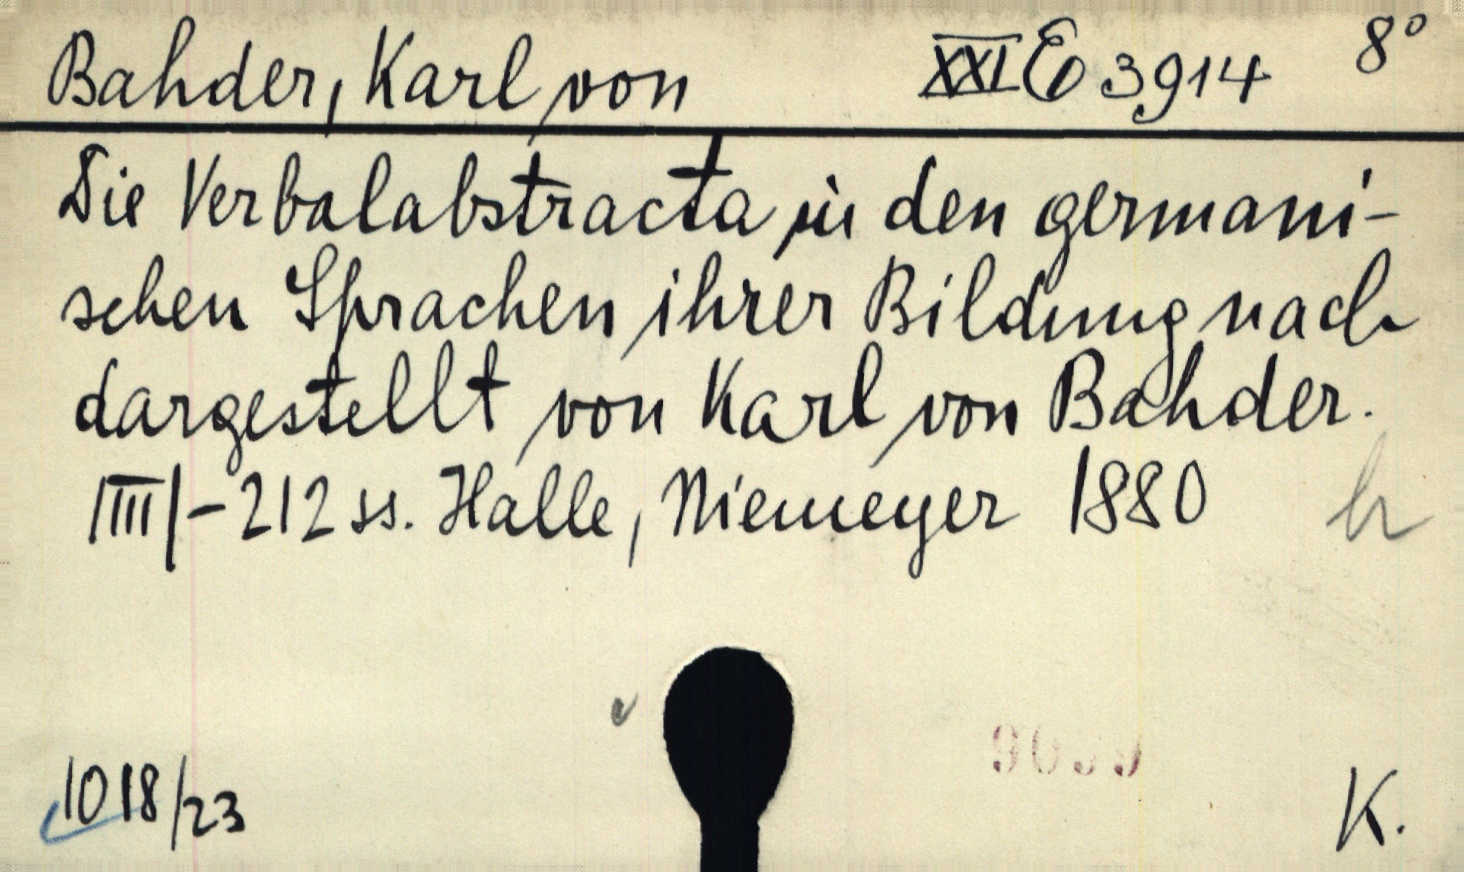 Bahder, Karl von XXI E 3914 8°
Die Verbalabstracta in den germani-
schen Sprachen ihrer Bildung nach
dargestellt von Karl von Bahder.
|III|-212 ss. Halle, Niemeyer 1880
1018/23
K.